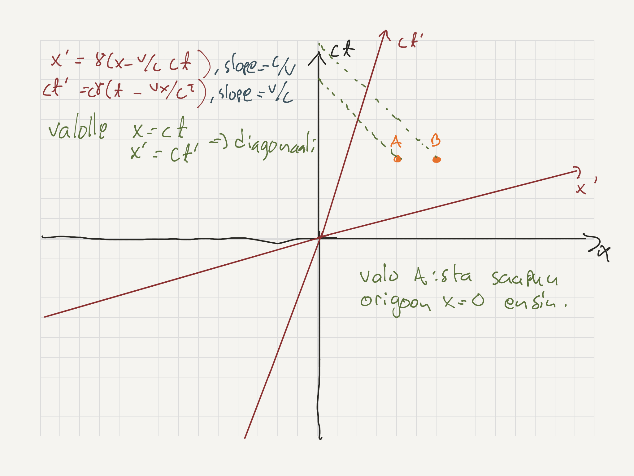 x' = γ(x - v/c ct), slope = c/v
ct' = cγ(t - vx/c²), slope = v/c
valolle x = ct
x' = ct' => diagonaali
ct
ct'
A B
x'
x
valo A:sta saapuu
origoon x=0 ensin.